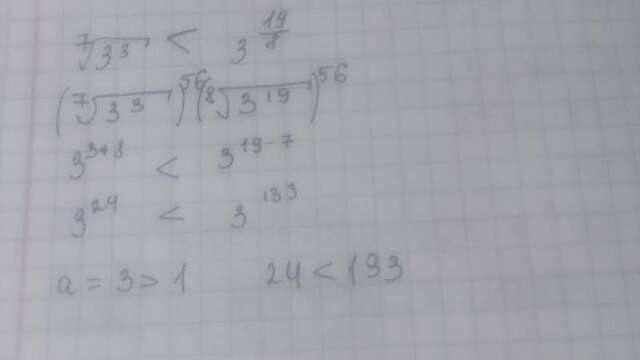 ⁷√3³ < 3^(19/8)
(⁷√3³)^56 (⁸√3¹⁹)^56
3^(3·8) < 3^(19·7)
3²⁴ < 3¹³³
a = 3 > 1 24 < 133